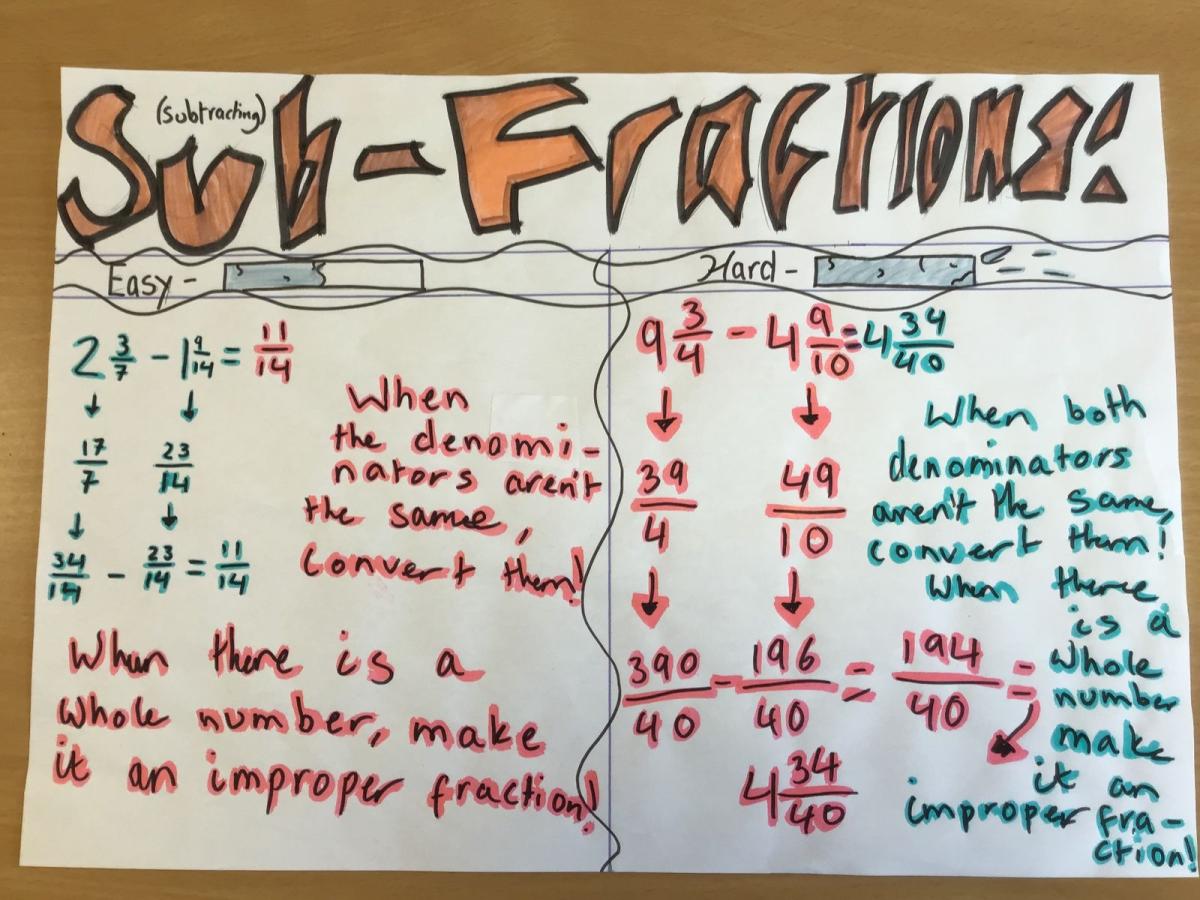 Sub-Fractions:
(subtracting)
Easy -
2 3/7 - 1 9/14 = 11/14
↓ ↓
17/7 23/14
↓ ↓
34/14 - 23/14 = 11/14
When
the denomi-
nators aren't
the same,
convert them!
When there is a
whole number, make
it an improper fraction!
Hard -
9 3/4 - 4 9/10 = 4 34/40
↓ ↓
39/4 49/10
↓ ↓
390/40 - 196/40 = 194/40 =
4 34/40
When both
denominators
aren't the same,
convert them!
When there
is a
whole
number
make
it an
improper fra-
ction!